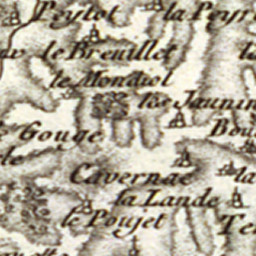 Peytot
la Peyr
le Breuillet
le Mondiol
Gouge
le
Cavernac
la Lande
le Poujet
Te